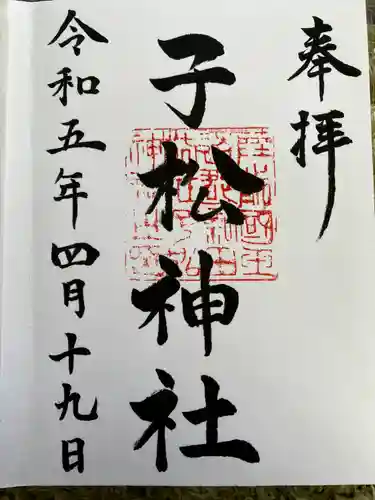 奉拝
子松神社
令和五年四月十九日